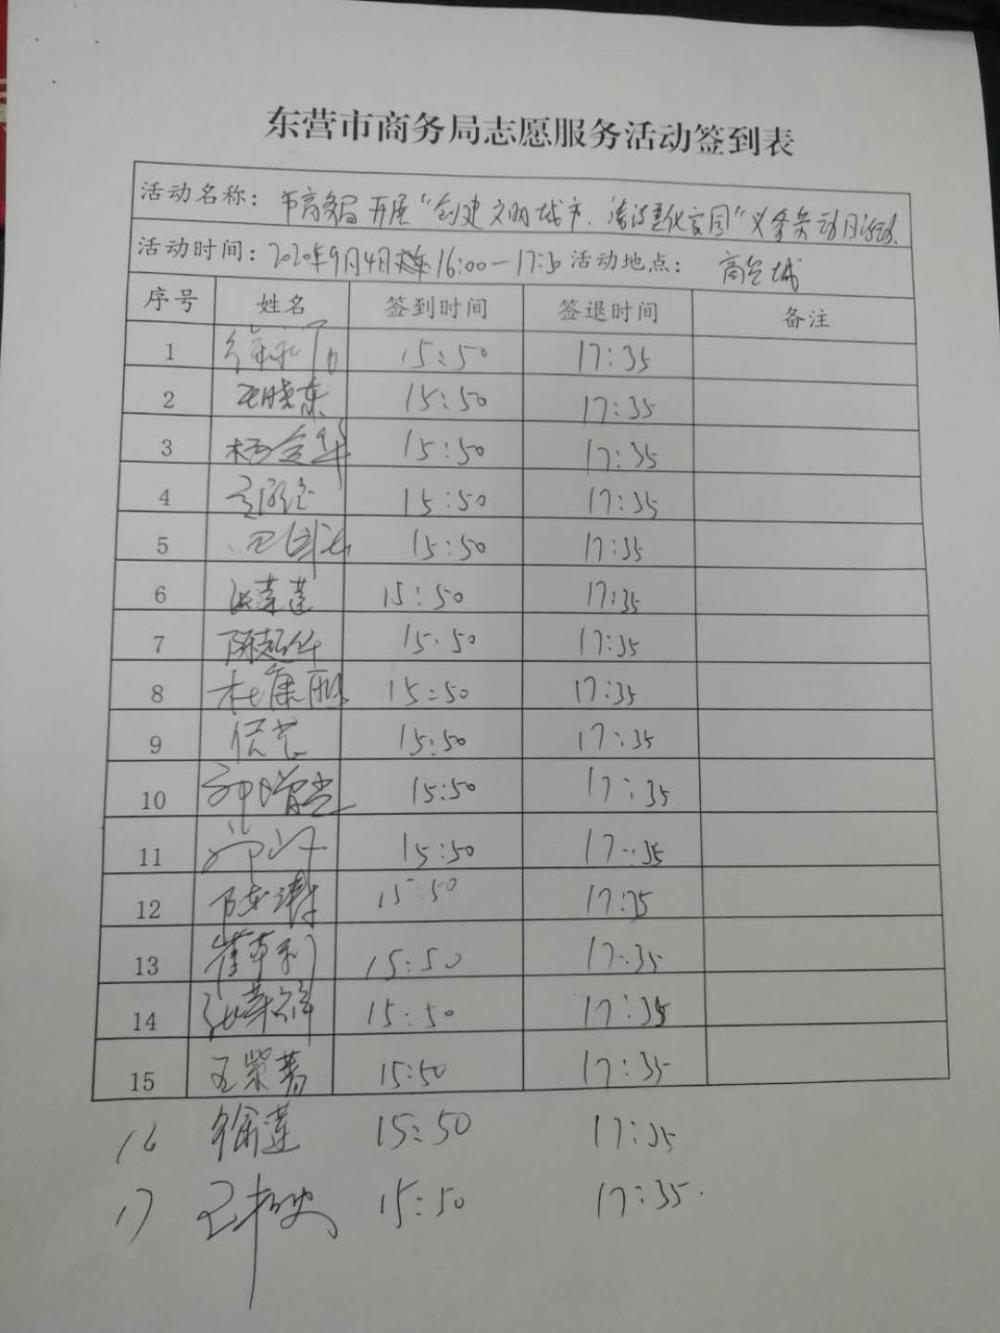 东营市商务局志愿服务活动签到表
活动名称：市商务局开展“创建文明城市、清洁美化家园”义务劳动日活动
活动时间：2020年9月4日 16:00—17:30 活动地点：商会城
序号 姓名 签到时间 签退时间 备注
1 15:50 17:35
2 晓东 15:50 17:35
3 杨金华 15:50 17:35
4 15:50 17:35
5 15:50 17:35
6 莲 15:50 17:35
7 陈超华 15:50 17:35
8 杜康丽 15:50 17:35
9 15:50 17:35
10 15:50 17:35
11 15:50 17:35
12 15:50 17:35
13 崔 15:50 17:35
14 张荣祥 15:50 17:35
15 王紫菁 15:50 17:35
16 徐莲 15:50 17:35
17 15:50 17:35.